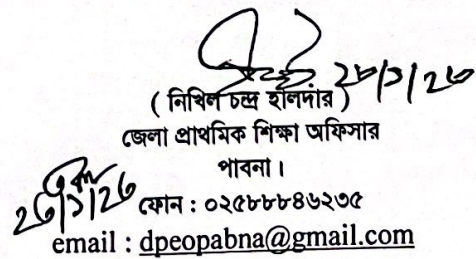 ২৮/১/২৬
( নিখিল চন্দ্র হালদার )
জেলা প্রাথমিক শিক্ষা অফিসার
পাবনা।
২৮/১/২৬
ফোন : ০২৫৮৮৮৪৬২৩৫
email : dpeopabna@gmail.com